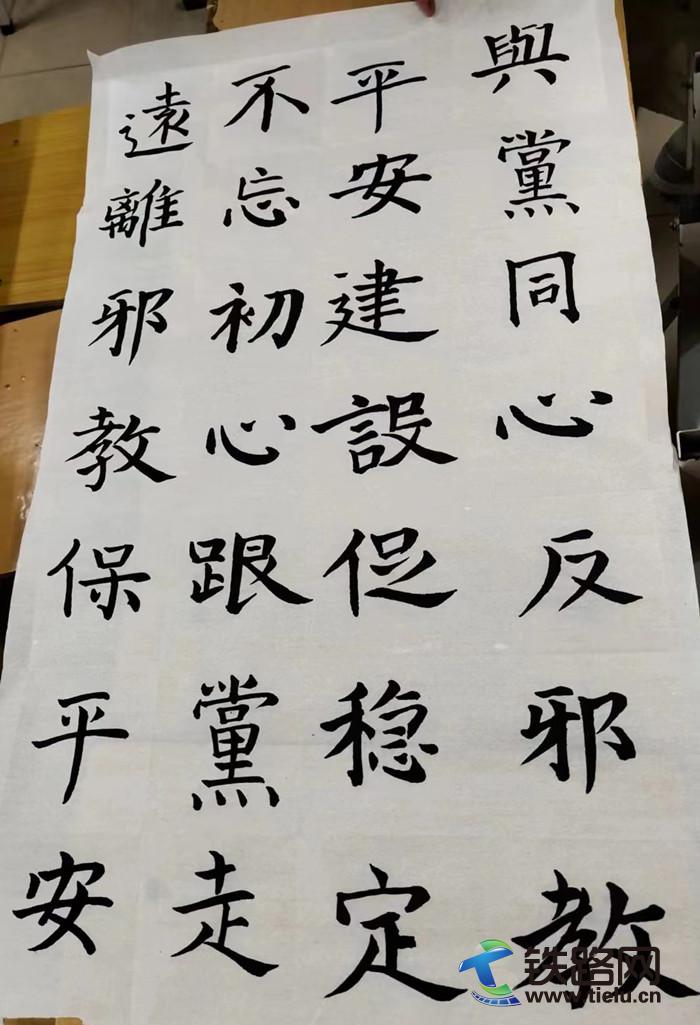 與黨同心反邪教
平安建設促稳定
不忘初心跟黨走
遠離邪教保平安
铁路网
www.tielu.cn